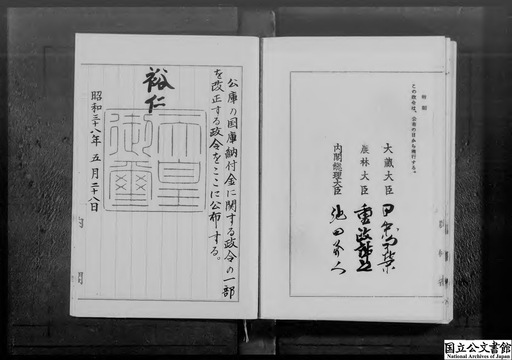 附則
この政令は、公布の日から施行する。
大蔵大臣 田中角榮
農林大臣 重政誠之
内閣総理大臣 池田勇人
公庫の国庫納付金に関する政令の一部
を改正する政令をここに公布する。
裕仁
天皇
御璽
昭和三十八年 五月二十八日
国立公文書館
National Archives of Japan